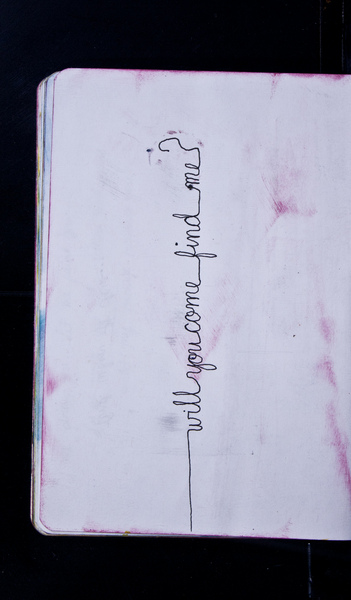 will you come find me?